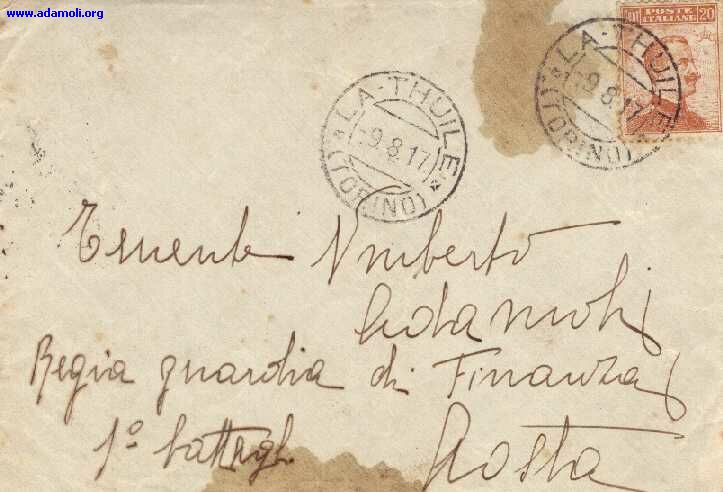 www.adamoli.org
POSTE ITALIANE
CENT 20
LA-THUILE
9.8.17
(TORINO)
LA-THUILE
9.8.17
(TORINO)
Tenente Umberto
Adamoli
Regia guardia di Finanza
1º battagl. Aosta